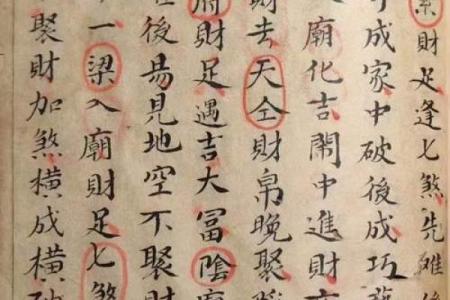 財足逢七煞先
成家中破後成巧
廟化吉鬧中進財
財去天仝財帛晚聚
府財足遇吉大冨陰
後易見地空不聚財
一梁入廟財足七煞
聚財加煞橫成橫破